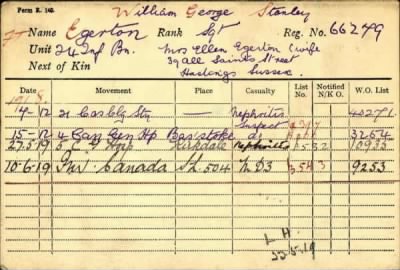 Form R. 140.
William George Stanley
Name Egerton Rank Sgt Reg. No. 66249
Unit 24 Inf Bn. Mrs Ellen Egerton (wife
Next of Kin 39 All Saints Street
Hastings Sussex.
Date Movement Place Casualty List No. Notified N/K O. W.O. List
1918
4-12 21 Cas Clg Stn Nephritis 40271
Suspect
15-12 4 Can Gen Hp Basistoke do 32654
27.5.19 5 C.G Hosp Kirkdale Nephritis 532 10935
10-6-19 Inv. Canada Sh. 504 N D3 3543 9253
L.H.
23.5.19